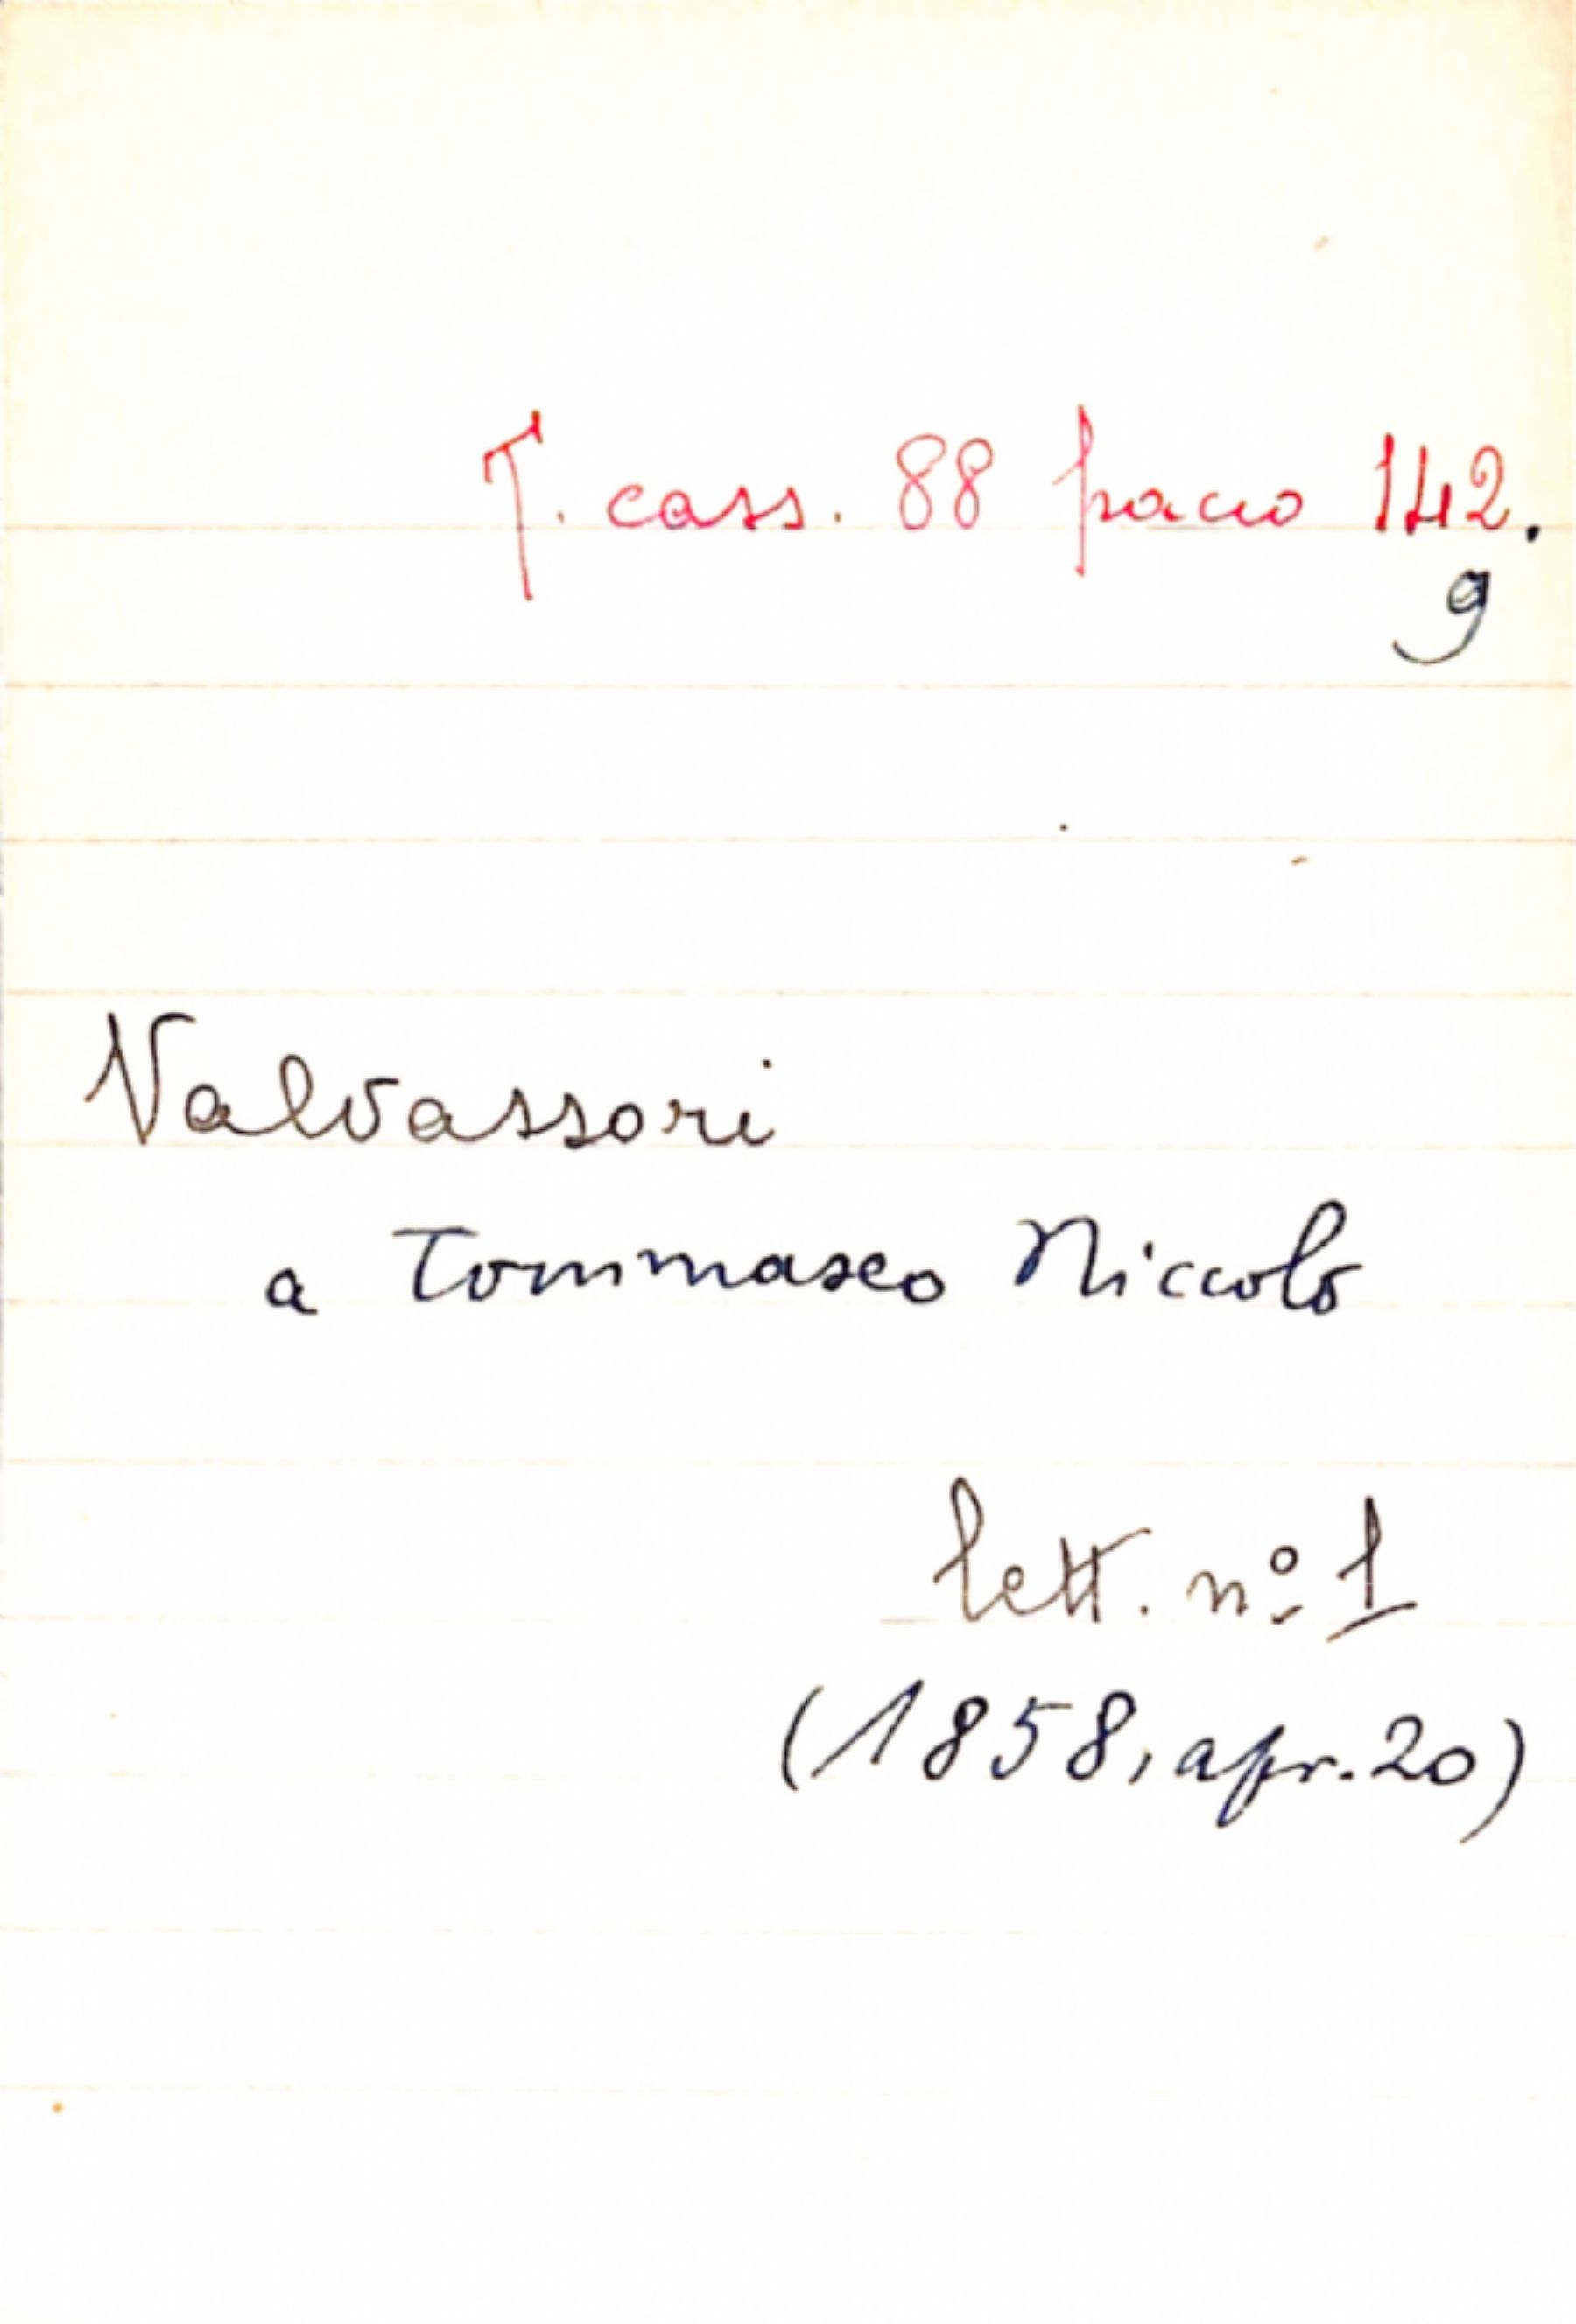 T. cass. 88 pacco 142.
9
Valvassori
a Tommaseo Niccolò
lett. nº 1
(1858, apr. 20)